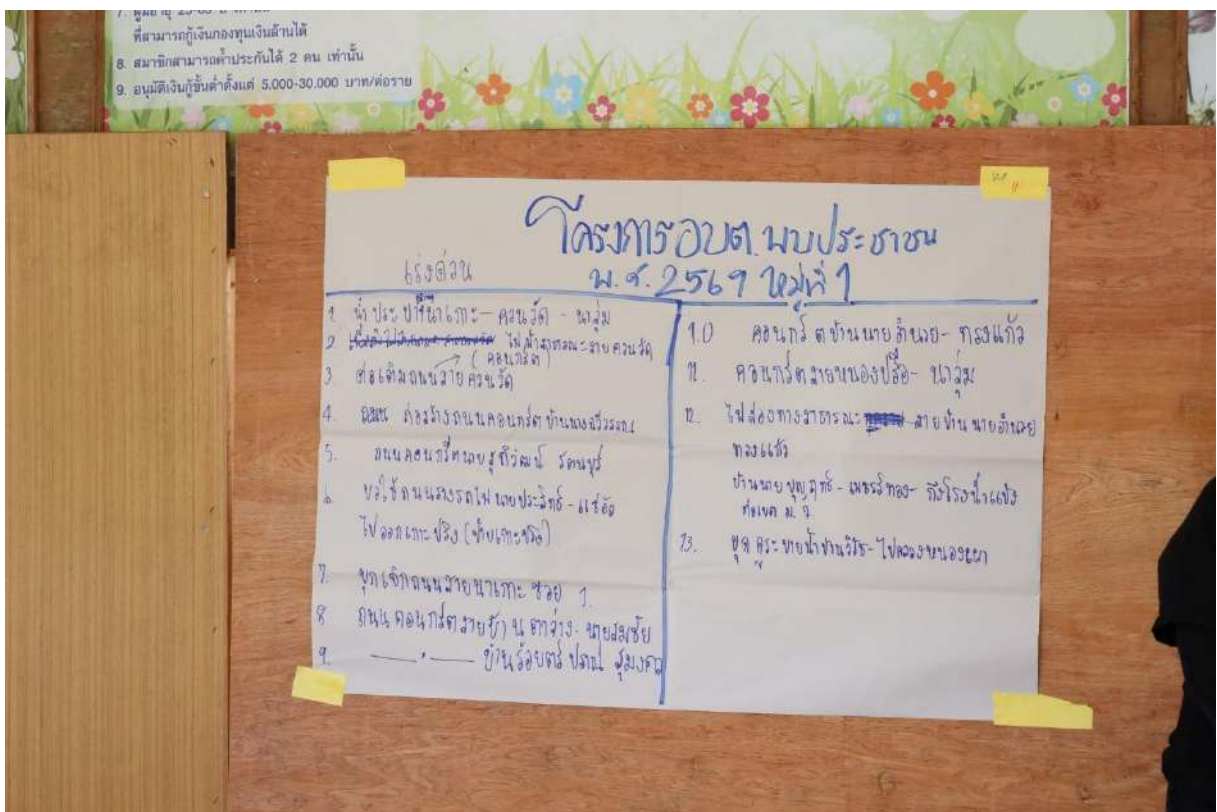 ที่สามารถกู้เงินกองทุนเงินล้านได้
8. สมาชิกสามารถค้ำประกันได้ 2 คน เท่านั้น
9. อนุมัติเงินกู้ขั้นต่ำตั้งแต่ 5.000-30.000 บาท/ต่อราย
โครงการอบต.พบประชาชน
เร่งด่วน
พ.ศ.2569 หมู่ที่ 1
1 น้ำประปา นาเกาะ - ควนวัด - นาลุ่ม
2 ไฟฟ้าสาธารณะสายควนวัด
(คอนกรีต)
3. ต่อเติมถนนสายควนวัด
4. ก่อสร้างถนนคอนกรีตบ้านนางฉวีวรรณ
5. ถนนคอนกรีตนายสุทิวัฒน์
6 ขอใช้ถนนรางรถไฟ นายประสิทธิ์ -
ไปออกเกาะปริง
7. บุกเบิกถนนสายนาเกาะ ซอย 1.
8 ถนนคอนกรีตสายบ้าน ตาจ่าง - นายสมชัย
9. —— " —— บ้านร้อยตรี
10 คอนกรีตบ้านนายอำนวย - ทรงแก้ว
11. คอนกรีตสายหนองปรือ - นาลุ่ม
12. ไฟส่องทางสาธารณะ สายบ้านนายอำนวย
ทรงแก้ว
บ้านนายบุญฤทธิ์ - เพชรสีทอง - ถึงโรงน้ำแข็ง
ต่อเขต ม.
13. ขุดคูระบายน้ำบ้านวิรัช - ไปคลองหนอง